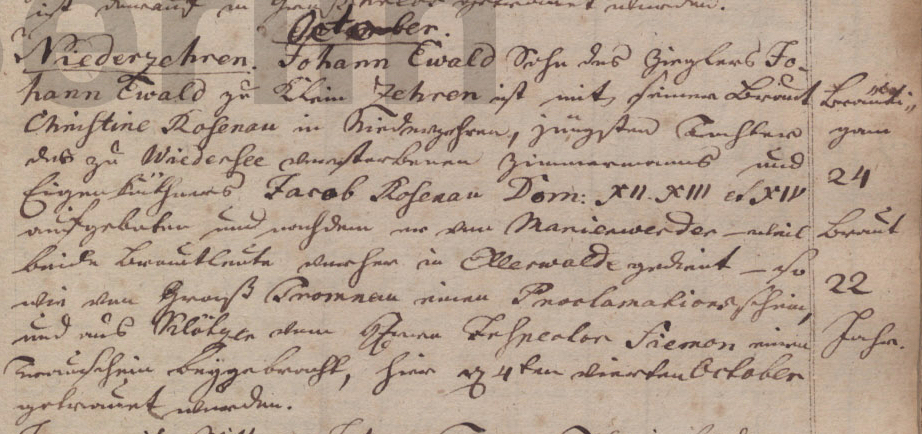 ist darauf in getrauet worden.
October.
Niederzehren. Johann Ewald Sohn des Zieglers Jo-
hann Ewald zu Klein Zehren ist mit seiner Braut
Christine Rosenau in Niederzehren, jüngsten Tochter
des zu Wiedersee verstorbenen Zimmermanns und
Eigenkäthners Jacob Rosenau Dom: XII. XIII et XIV
aufgeboten und nachdem er von Marienwerder - weil
beide Brautleute vorher in Ellerwalde gedient - so
wie von Groß Tromnau einen Proclamationsschein,
und aus Klötzen vom Herrn Inspector Siemon einen
Trauschein beygebracht, hier 4ten vierten October
getrauet worden.
Bräuti-
gam
24
Braut
22
Jahr.